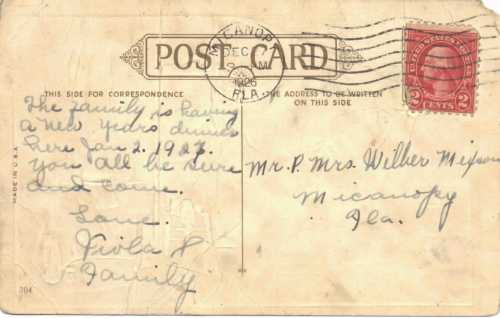 MICANOPY
DEC
9 M
1926
FLA.
POST CARD
UNITED STATES POSTAGE
2 CENTS 2
THIS SIDE FOR CORRESPONDENCE
THE ADDRESS TO BE WRITTEN
ON THIS SIDE
The family is having
a New Years dinner
here Jan 2. 1927.
you all be sure
and come.
Love.
Viola &
Family
Mr. & Mrs. Wilber Mixson
Micanopy
Fla.
MADE IN U.S.A.
304